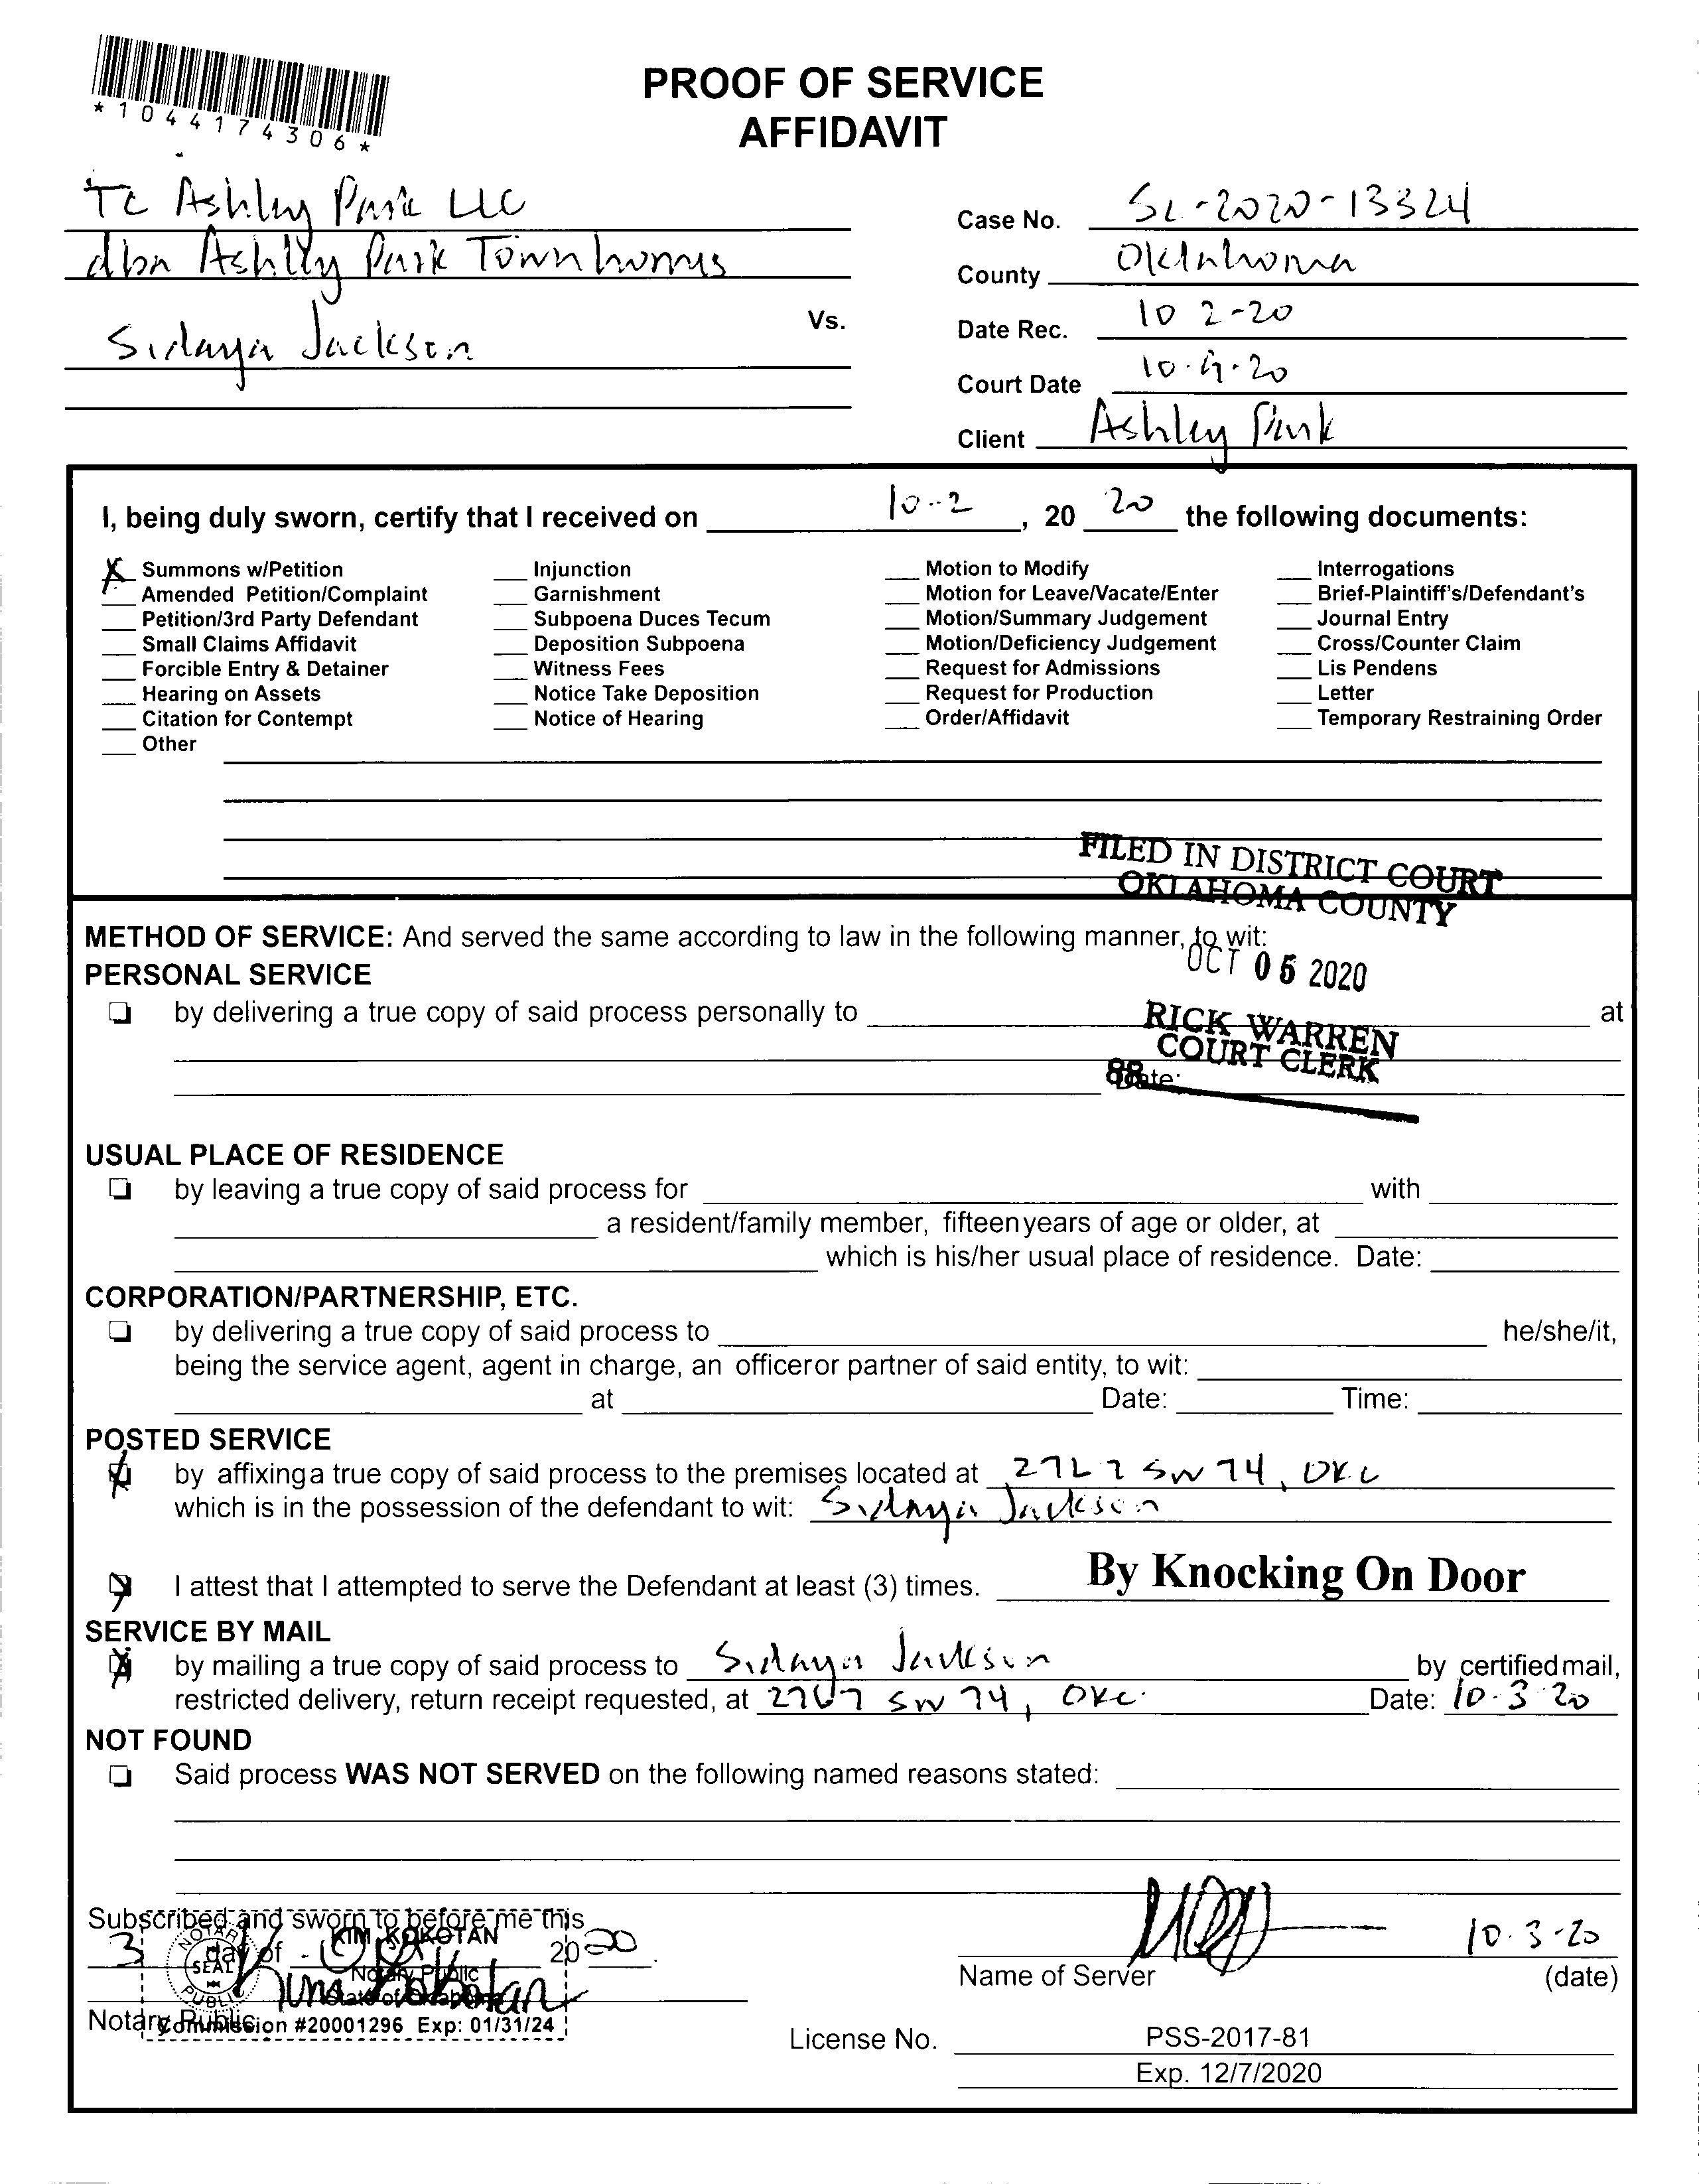 *1044174306*
PROOF OF SERVICE
AFFIDAVIT
Tc Ashley Park LLC
dba Ashley Park Townhomes
Vs.
Sidaya Jackson
Case No. SC-2020-13324
County Oklahoma
Date Rec. 10 2-20
Court Date 10-9-20
Client Ashley Park
I, being duly sworn, certify that I received on 10-2, 20 20 the following documents:
X Summons w/Petition
Amended Petition/Complaint
Petition/3rd Party Defendant
Small Claims Affidavit
Forcible Entry & Detainer
Hearing on Assets
Citation for Contempt
Other
Injunction
Garnishment
Subpoena Duces Tecum
Deposition Subpoena
Witness Fees
Notice Take Deposition
Notice of Hearing
Motion to Modify
Motion for Leave/Vacate/Enter
Motion/Summary Judgement
Motion/Deficiency Judgement
Request for Admissions
Request for Production
Order/Affidavit
Interrogations
Brief-Plaintiff's/Defendant's
Journal Entry
Cross/Counter Claim
Lis Pendens
Letter
Temporary Restraining Order
FILED IN DISTRICT COURT
OKLAHOMA COUNTY
OCT 05 2020
RICK WARREN
COURT CLERK
88
METHOD OF SERVICE: And served the same according to law in the following manner, to wit:
PERSONAL SERVICE
by delivering a true copy of said process personally to at
Date:
USUAL PLACE OF RESIDENCE
by leaving a true copy of said process for with
a resident/family member, fifteen years of age or older, at
which is his/her usual place of residence. Date:
CORPORATION/PARTNERSHIP, ETC.
by delivering a true copy of said process to he/she/it,
being the service agent, agent in charge, an officer or partner of said entity, to wit:
at Date: Time:
POSTED SERVICE
X by affixing a true copy of said process to the premises located at 2767 SW 74, OKC
which is in the possession of the defendant to wit: Sidaya Jackson
X I attest that I attempted to serve the Defendant at least (3) times. By Knocking On Door
SERVICE BY MAIL
X by mailing a true copy of said process to Sidaya Jackson by certified mail,
restricted delivery, return receipt requested, at 2767 SW 74, OKC. Date: 10-3 20
NOT FOUND
Said process WAS NOT SERVED on the following named reasons stated:
Subscribed and sworn to before me this
3 day of Oct 2020.
KIM KOKOTAN
Notary Public
State of Oklahoma
Commission #20001296 Exp: 01/31/24
NOTARY PUBLIC
SEAL
Kim Kokotan
Notary Public
10-3-20
Name of Server (date)
License No. PSS-2017-81
Exp. 12/7/2020